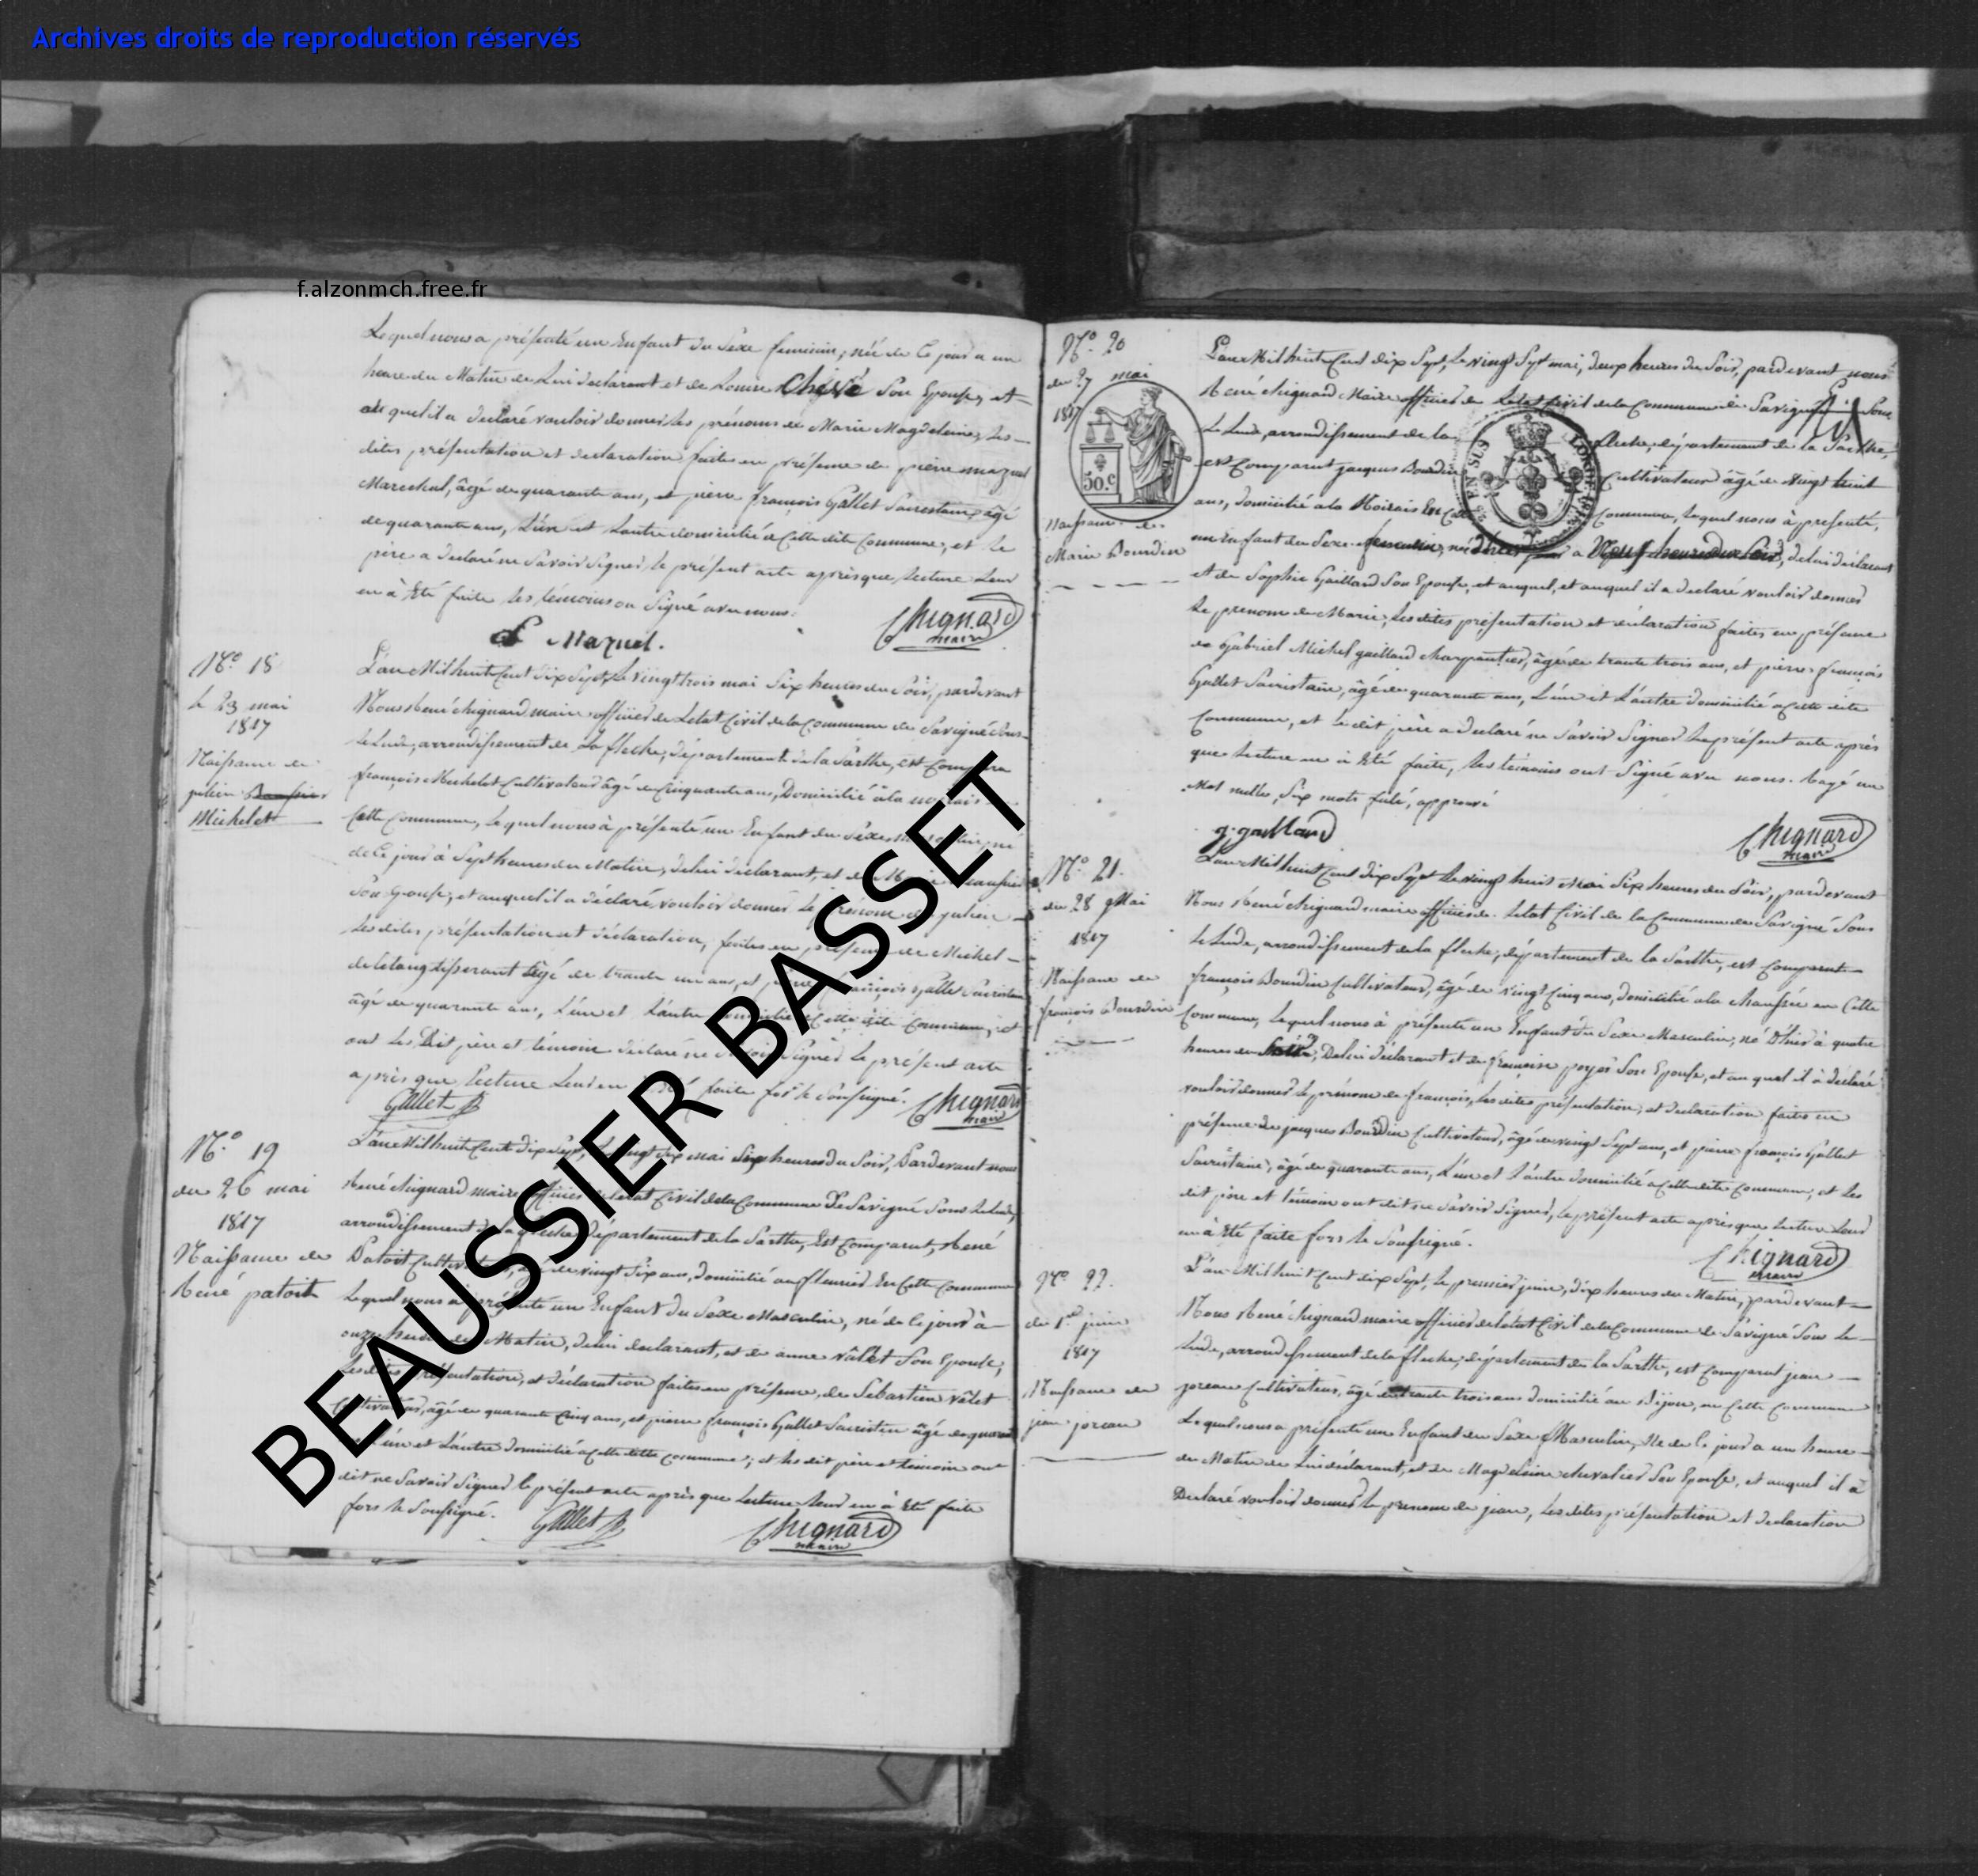 Archives droits de reproduction réservés
f.alzonmch.free.fr
Lequel nous a présenté un Enfant du Sexe feminin, née de ce jour a un
heure du Matin de Lui declarant et de Louise Chevé Son Epouse, et
au quel il a declaré vouloir donner les prénoms de Marie Magdeleine, les
dites présentation et declaration faites en présence de pierre mazuel
Marechal, âgé de quarante ans, et pierre françois Gallet Sacristain, âgé
de quarante ans, L'un et L'autre domicilié a Cette dite Commune, et le
père a declaré ne Savoir Signer, le présent acte après que lecture Leur
en à Eté faite les témoins on Signé avec nous.
Mazuel. Chignard
maire
N° 18
le 23 mai
1817
Naissance de
julien
Michelet
L'an Mil huit Cent Dix Sept, le vingt trois mai Six heures du Soir, pardevant
Nous René chignard maire officier de Letat Civil de la Commune de Savigné Sous
le Lude, arrondissement de La fleche, département de la Sarthe, est Comparu
françois Michelet Cultivateur âgé de Cinquante ans, Domicilié à la
Cette Commune, lequel nous à présenté un Enfant du Sexe masculin, né
de Ce jour à Sept heures du Matin, de lui déclarant, et de
Son Epouse, et auquel il a déclaré vouloir donner le prénom de julien
les dites présentation et déclaration, faites en présence de Michel
deletang tisserant âgé de trante un ans, et pierre françois Gallet Sacristain
âgé de quarante ans, L'un et L'autre domicilié a Cette dite Commune, et
ont les Dit père et témoin déclaré ne Savoir Signer le présent acte
après que Lecture Leur en à Eté faite fors le Soussigné.
Gallet Chignard
maire
N° 19
du 26 mai
1817
Naissance de
René patoit
L'an Mil huit Cent Dix Sept, le vingt Six mai Six heures du Soir, Pardevant nous
René chignard maire officier de Letat Civil de la Commune De Savigné Sous le Lude,
arrondissement de la fleche, Département de la Sarthe, Est Comparut, René
Patoit Cultivateur, âgé de vingt Six ans, domicilié En Cette Commune
Lequel nous a présenté un Enfant du Sexe Masculin, né de Ce jour à
onze heures du Matin, de lui declarant, et de anne Vâlet Son Epouse,
les dites présentation, et déclaration faites en présence, de Sebastien Vâlet
Cultivateur, âgé de quarante Cinq ans, et pierre françois Gallet Sacristin âgé de quarante
ans L'un et L'autre domicilié a Cette ditte Commune; et les dit père et témoin ont
dit ne Savoir Signer le présent acte après que Lecture leur en à Eté faite
fors le Soussigné.
Gallet Chignard
maire
N° 20
du 27 mai
1817
50.c
Naissance de
Marie Bourdin
L'an Mil huit Cent dix Sept, le vingt Sept mai, deux heures du Soir, pardevant nous
René chignard Maire officier de Letat Civil de la Commune de Savigné Sous
le Lude, arrondissement de la fleche, département de la Sarthe,
est Comparut jacques Bourdin Cultivateur âgé de vingt huit
ans, domicilié a la En Cette Commune, lequel nous à presenté,
un Enfant du Sexe feminin, a Neuf heures du Soir, de lui déclarant
et de Sophie Gaillard Son Epouse, et auquel, et auquel il a declaré vouloir donner
le prenom de Marie, les dites présentation et déclaration faites en présence
de Gabriel Michel gaillard charpentier, âgé de trante trois ans, et pierre françois
Gallet Sacristain, âgé de quarante ans, L'un et L'autre domicilié a Cette dite
Commune, et le dit père a declaré ne Savoir Signer le présent acte après
que lecture en à Eté faite, les témoins ont Signé avec nous. Rayé un
Mot nulle, Six mots approuvé
g. gaillard Chignard
maire
N° 21.
du 28 Mai
1817
Naissance de
françois Bourdin
L'an Mil huit Cent dix Sept le vingt huit Mai Six heures du Soir, pardevant
Nous René chignard maire officier de Letat Civil de la Commune de Savigné Sous
le Lude, arrondissement de la fleche, département de la Sarthe, est Comparut
françois Bourdin Cultivateur, âgé de vingt Cinq ans, domicilié a la en Cette
Commune, lequel nous à présenté un Enfant du Sexe Masculin, né D'hier à quatre
heures du, De lui déclarant et de françoise Son Epouse, et au quel il à déclaré
vouloir donner le prénom de françois, les dites présentation, et declaration faites en
présence de jacques Bourdin Cultivateur, âgé de vingt Sept ans, et pierre françois Gallet
Sacristain, âgé de quarante ans, L'un et L'autre domicilié a Cette dite Commune, et les
dit père et témoin ont dit ne Savoir Signer, le présent acte après que lecture Leur
en à Eté faite fors le Soussigné.
Chignard
maire
N° 22.
du 1er juin
1817
Naissance de
jean joreau
L'an Mil huit Cent dix Sept, le premier juin, dix heures du Matin, pardevant
Nous René chignard maire officier de létat Civil de la Commune de Savigné Sous le
Lude, arrondissement de la fleche, département de la Sarthe, est Comparut jean
joreau Cultivateur, âgé de trante trois ans domicilié au Bijou, en Cette Commune
Lequel nous a présenté un Enfant du Sexe Masculin, Né de Ce jour a un heure
du Matin de Lui déclarant, et de Magdeleine chevalier Son Epouse, et auquel il à
Déclaré vouloir donner le prenom de jean, les dites présentation et declaration
BEAUSSIER BASSET